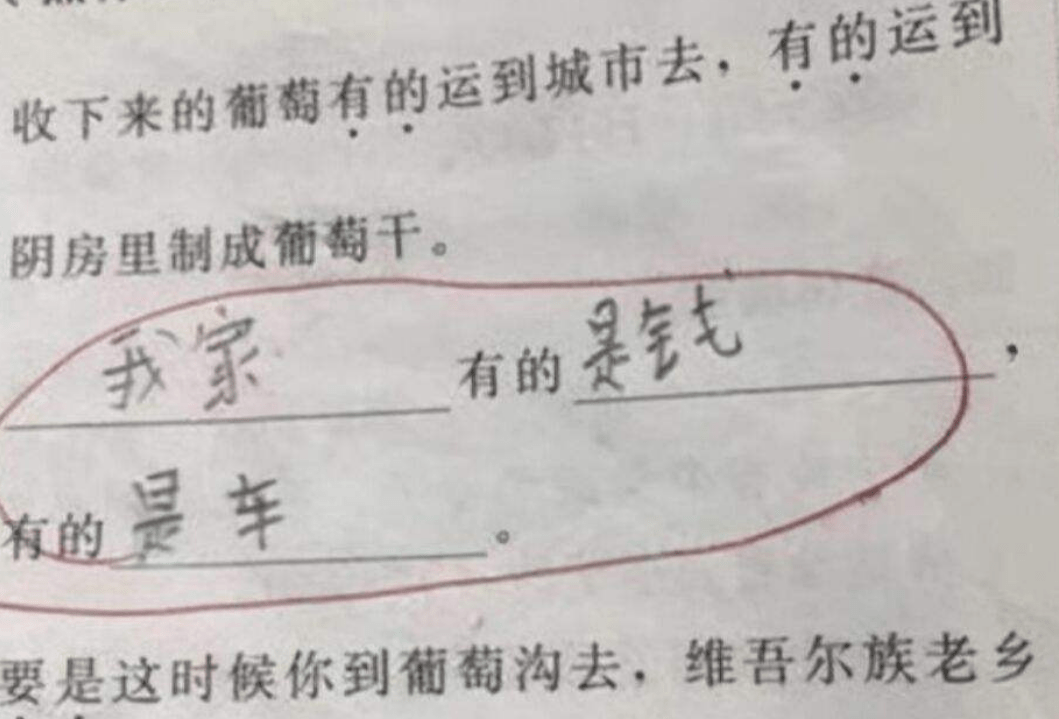 收下来的葡萄有的运到城市去，有的运到
阴房里制成葡萄干。
我家有的是钱，
有的是车。
要是这时候你到葡萄沟去，维吾尔族老乡